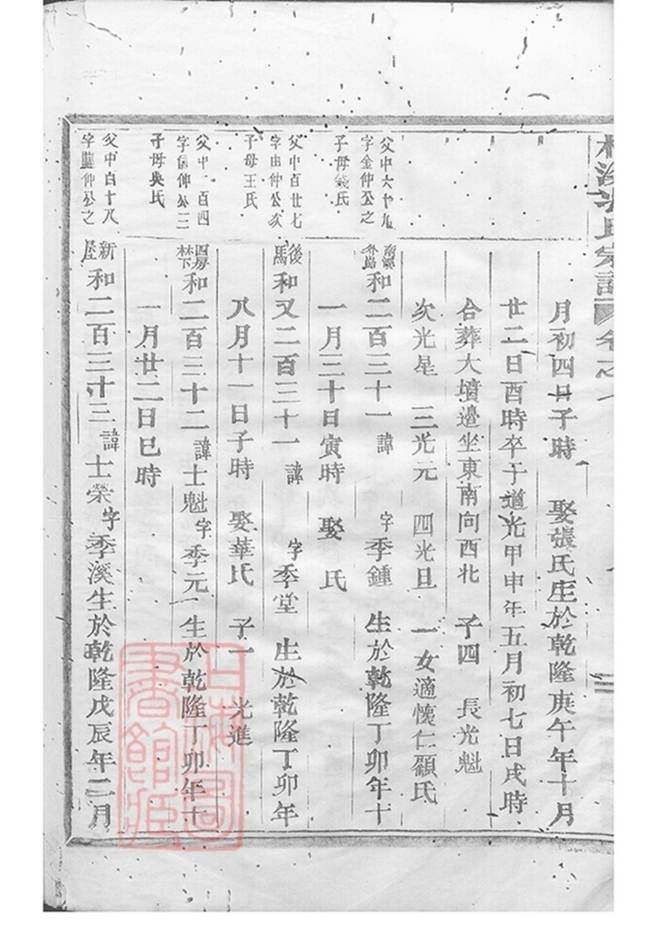 氏宗譜 卷之
月初四日子時 娶張氏生於乾隆庚午年十月
廿二日酉時卒于道光甲申年五月初七日戌時
合葬大墳邉坐東南向西北 子四 長光魁
次光星 三光元 四光旦 一女適懷仁顧氏
父中六十九
字金仲公之
子母錢氏
和二百三十一 諱 字季鍾 生於乾隆丁卯年十
一月三十日寅時 娶 氏
父中百廿七
字由仲公次
子母王氏
後馬
和又二百三十一 諱 字季堂 生於乾隆丁卯年
八月十一日子時 娶華氏 子一 光進
父中一百四
字信仲公三
子母吳氏
和二百三十二 諱士魁 字季元 生於乾隆丁卯年十
一月廿二日巳時
父中百十八
字 仲公之
新屋
和二百三十三 諱士榮 字季溪生於乾隆戊辰年二月
上海圖
書館藏